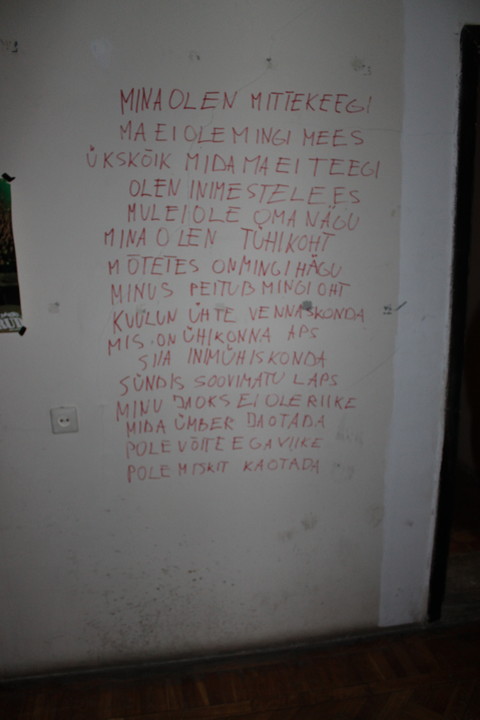 MINA OLEN MITTEKEEGI
MA EI OLE MINGI MEES
ÜKSKÕIK MIDA MA EI TEEGI
OLEN INIMESTELE EES
MUL EI OLE OMA NÄGU
MINA OLEN TÜHI KOHT
MÕTETES ON MINGI HÄGU
MINUS PEITUB MINGI OHT
KUULUN ÜHTE VENNASKONDA
MIS ON ÜHIKONNA APS
SIIA INIMÜHISKONDA
SÜNDIS SOOVIMATU LAPS
MINU JAOKS EI OLE RIIKE
MIDA ÜMBER JAOTADA
POLE VÕITE EGA VIIKE
POLE MISKIT KAOTADA